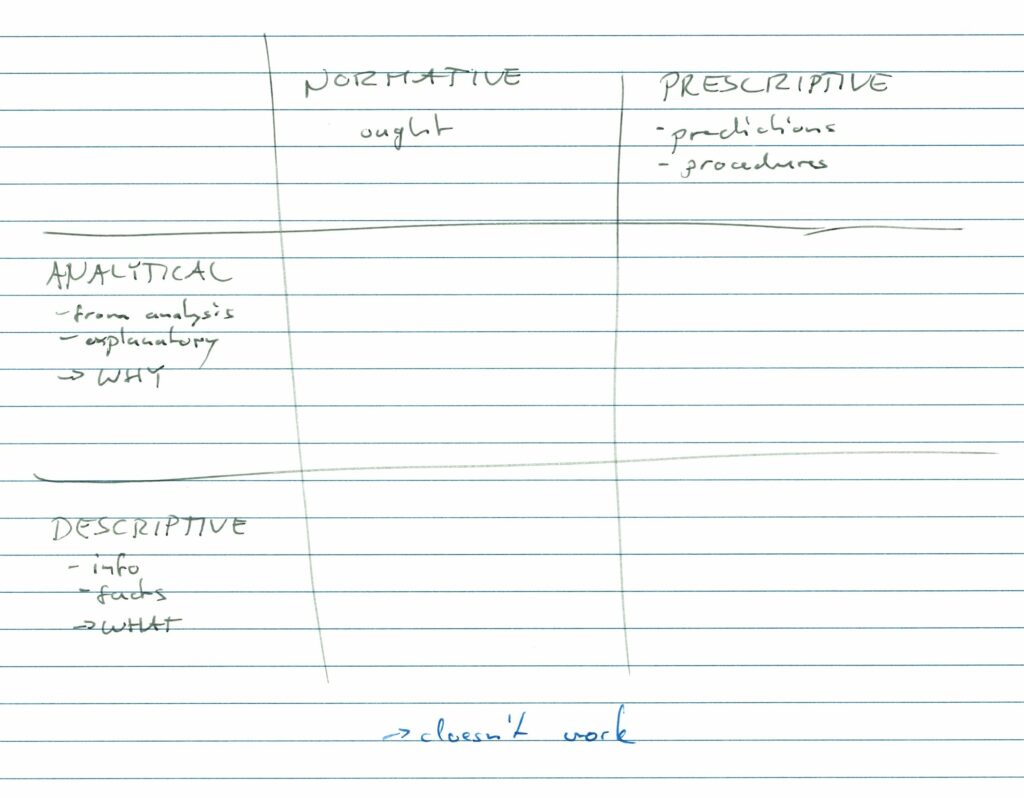 NORMATIVE
ought
PRESCRIPTIVE
- predictions
- procedures
ANALYTICAL
- from analysis
- explanatory
→ WHY
DESCRIPTIVE
- info
- facts
→ WHAT
→ doesn't work